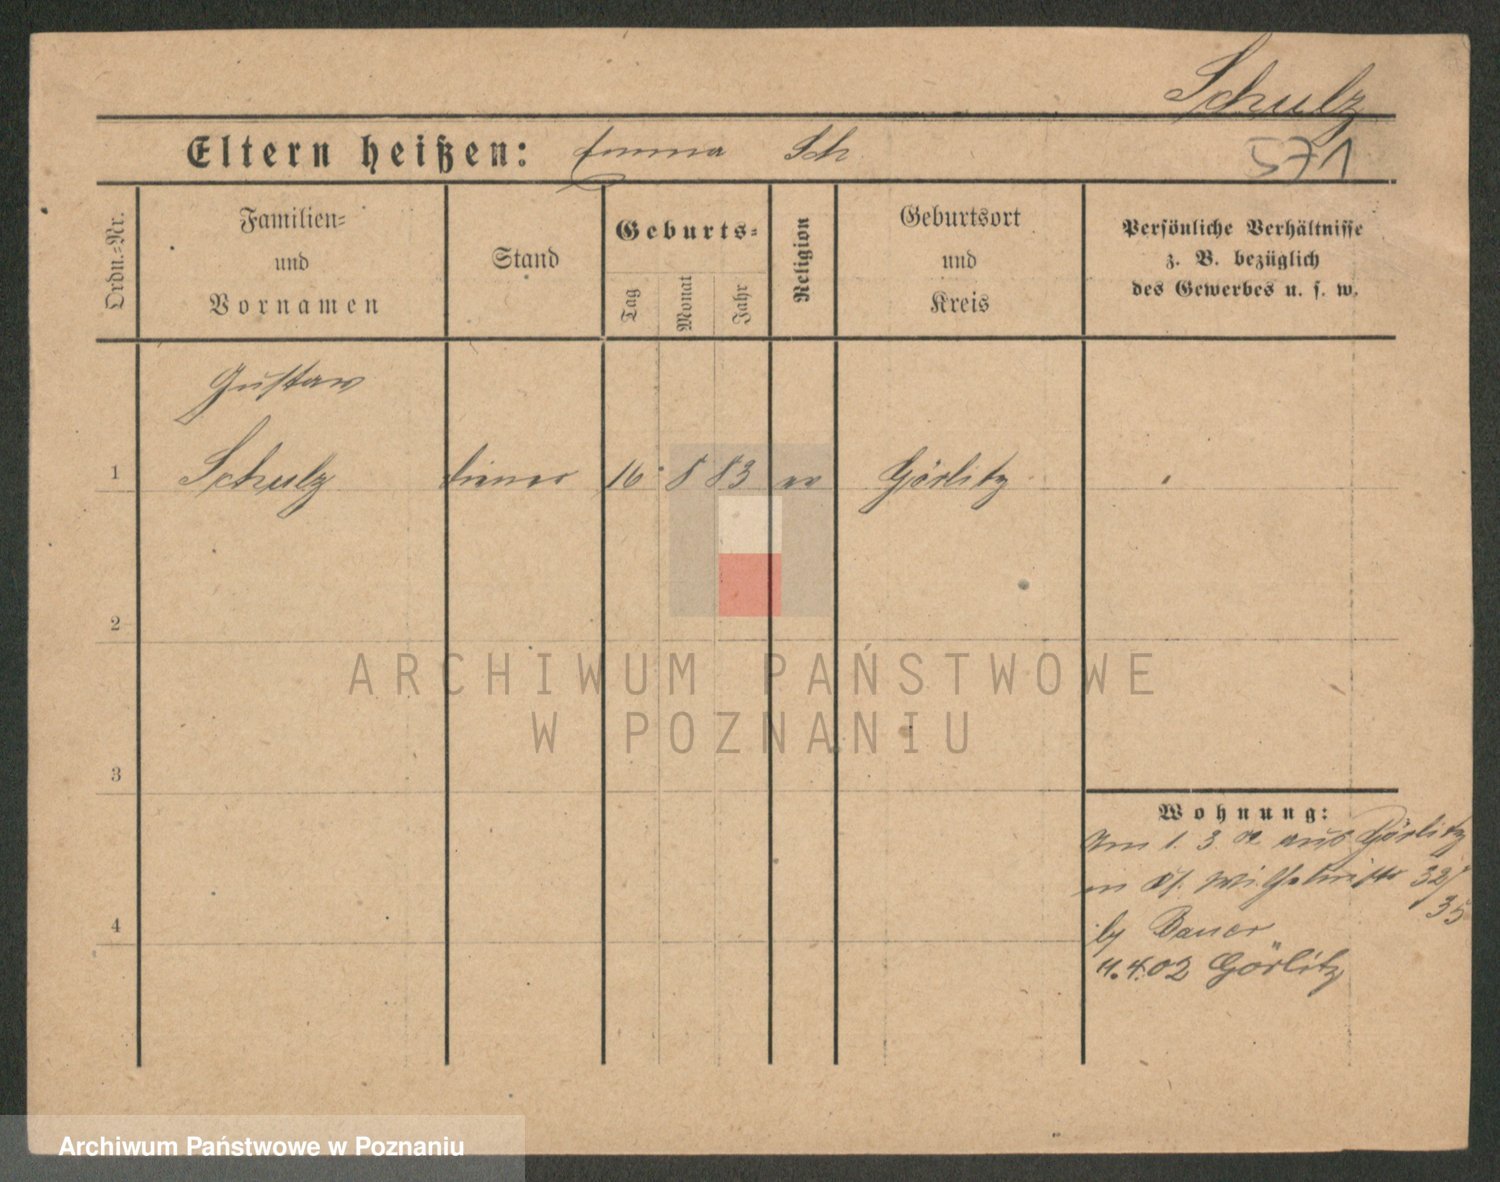 Schulz
Eltern heißen: Emma Sch
571
Ordn.-Nr.
Familien-
und
Vornamen
Stand
Geburts-
Tag
Monat
Jahr
Religion
Geburtsort
und
Kreis
Persönliche Verhältnisse
z. B. bezüglich
des Gewerbes u. s. w.
Gustav
1 Schulz Diener 16 8 83 ev Görlitz
2
ARCHIWUM PAŃSTWOWE
W POZNANIU
3
Wohnung:
1. 3. aus Görlitz
32/
35
4
by Bauer
11.4.02 Görlitz
Archiwum Państwowe w Poznaniu